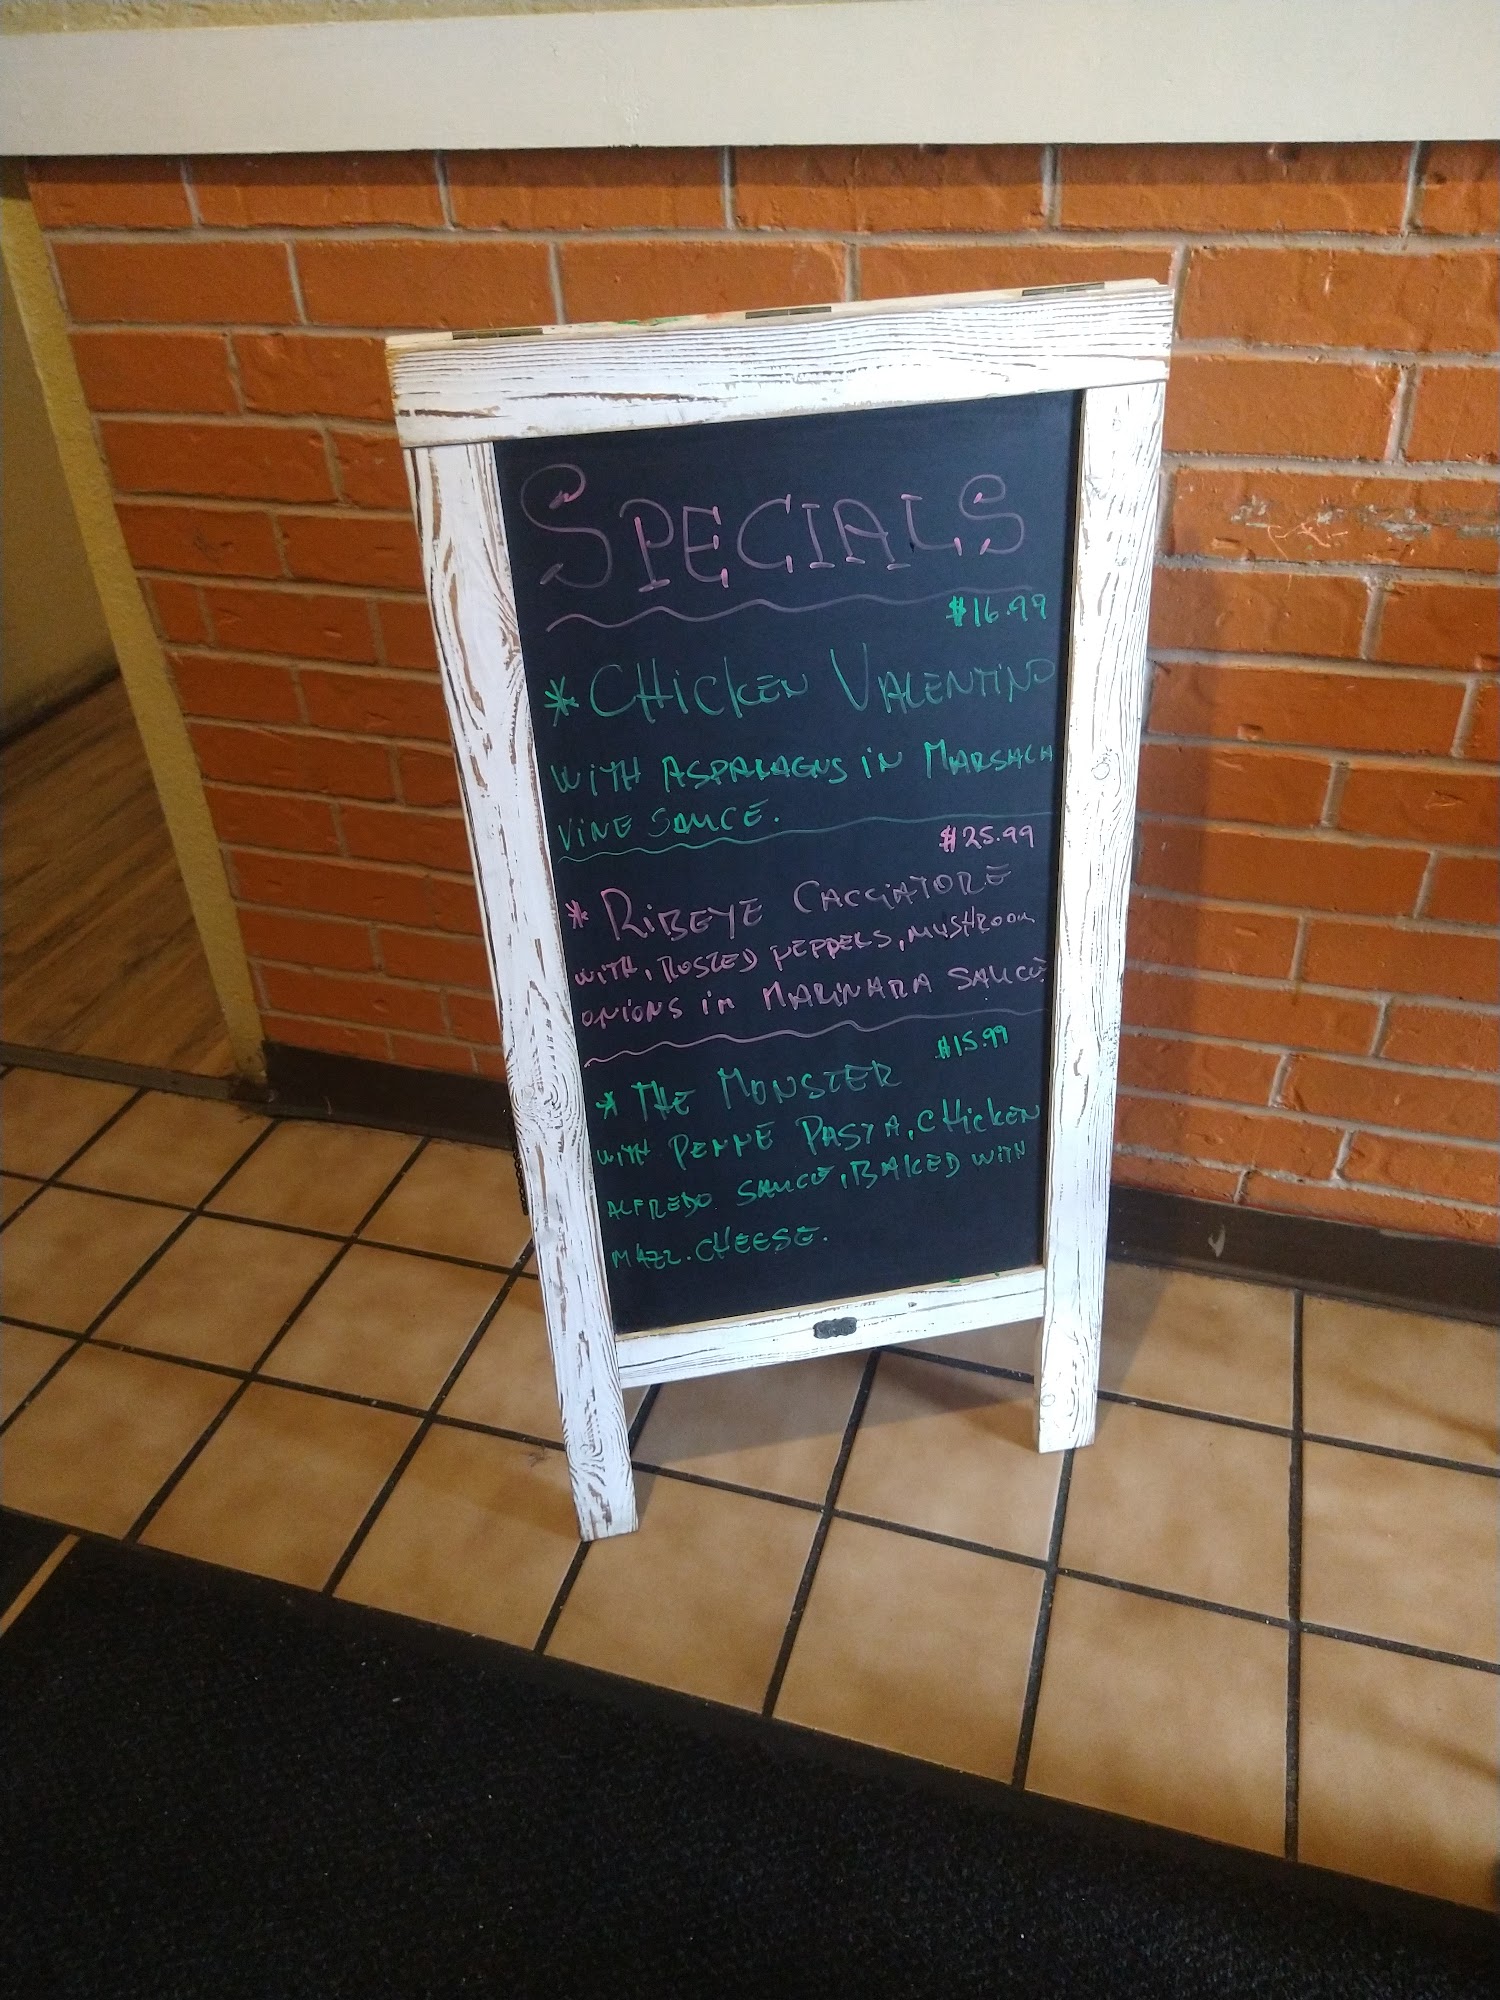 SPECIALS
$16.99
* CHiCKEN VALENTINO
WITH ASPARAGNS iN MARSALA
VINE SAUCE.
$25.99
* RiBEYE CACCIATORE
WITH, ROSTED PEPPERS, MUSHROOM
ONIONS in MARINARA SAUCE
$15.99
* THE MONSTER
WITH PENNE PASTA, CHicKEN
ALFREDO SAUCE, BAKED WITH
MAZZ. CHEESE.